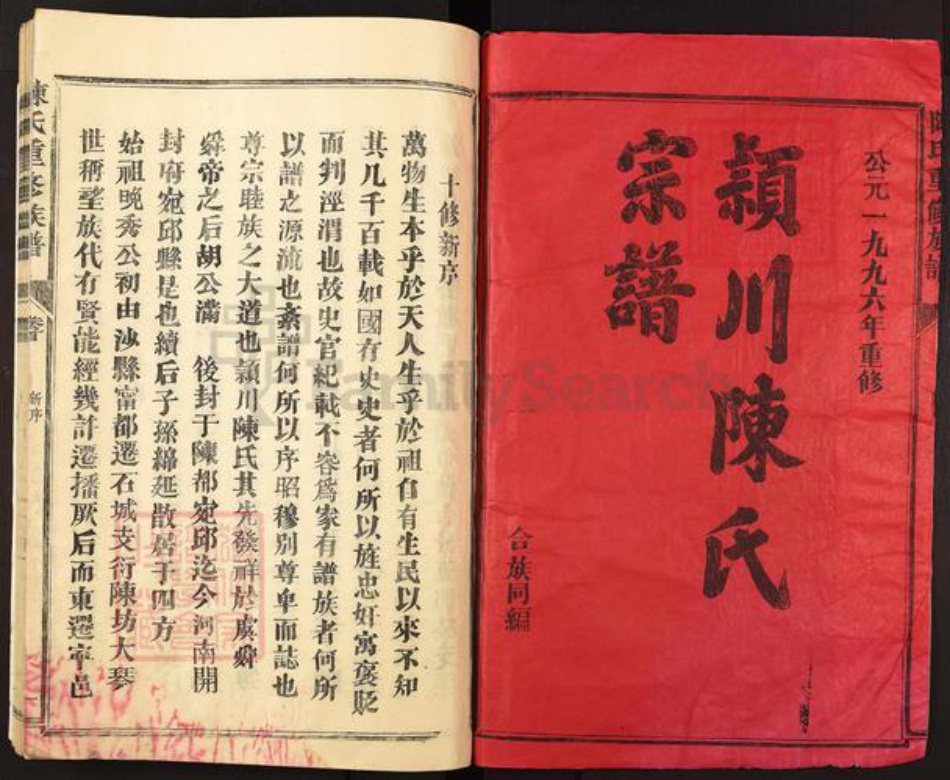 公元一九九六年重修
潁川陳氏
宗譜
合族同編
十修新序
萬物生本乎於天人生乎於祖自有生民以來不知
其几千百載如國有史史者何所以旌忠奸寓褒貶
而判涇渭也故史官紀載不容爲家有譜族者何所
以譜之源流也綦譜何所以序昭穆別尊卑而誌也
尊宗睦族之大道也潁川陳氏其先發祥於虞舜
舜帝之后胡公滿 後封于陳都宛邱迄今河南開
封府宛邱縣是也續后子孫綿延散居于四方
始祖晚秀公初由沙縣甯都遷石城支衍陳坊大琴
世稱望族代有賢能經幾許遷播厥后而東遷寧邑
陳氏重修族譜
新序
陳氏重修族譜
FamilySearch